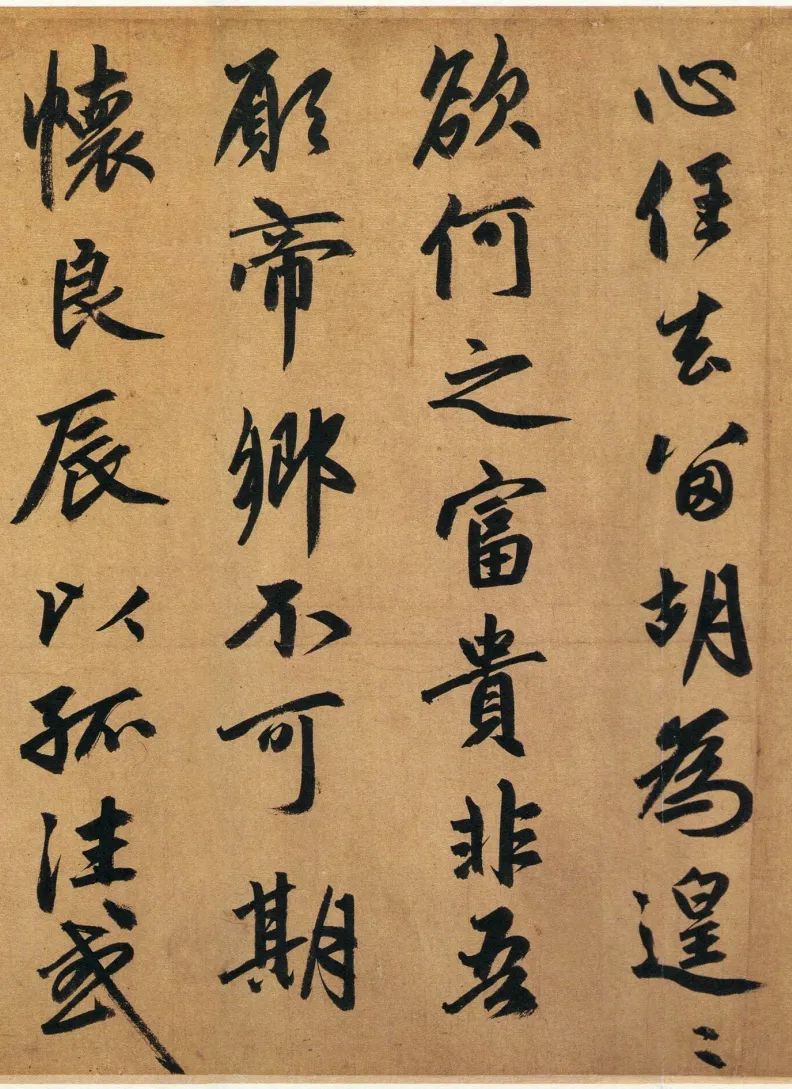 心任去留胡為遑〻
欲何之富貴非吾
願帝鄉不可期
懷良辰以孤往或